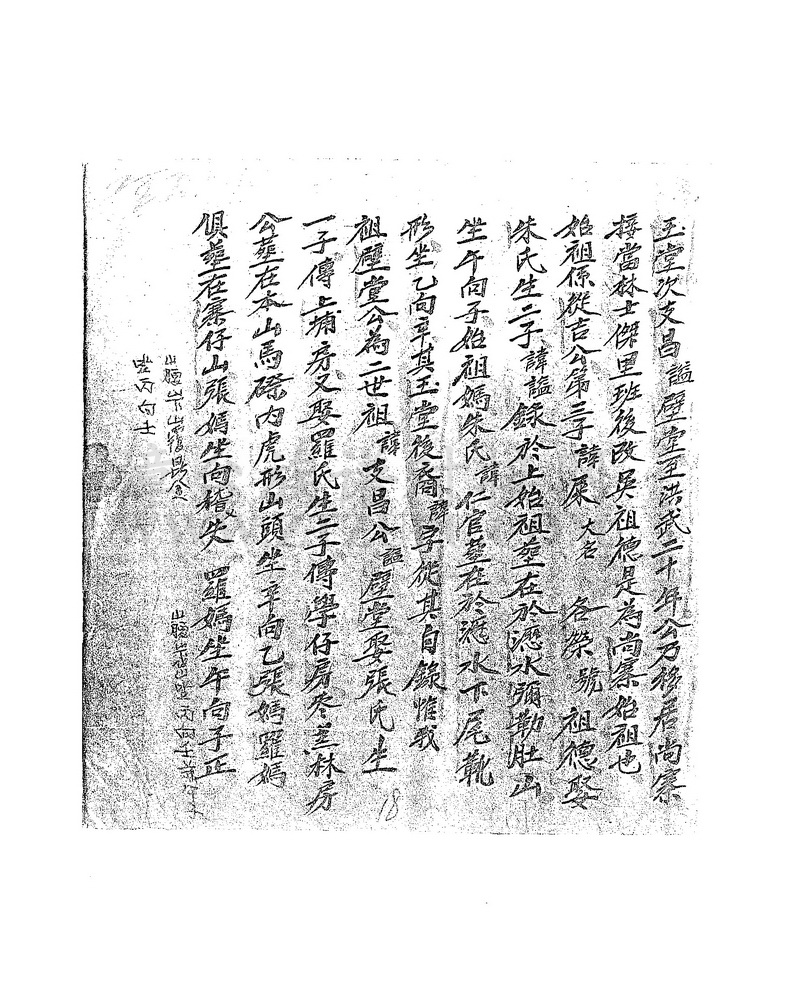 玉堂次支昌諡璧堂至洪武二十年公乃移居尚寨
接當林士傑里班後改吳祖德是為尚寨始祖也
始祖係從吉公第三子諱屎大名各榮號祖德娶
朱氏生二子諱諡錄於上始祖塟在於濦水彌勒肚山
坐午向子始祖媽朱氏諱仁官塟在於濦水下尾靴
形坐乙向辛其玉堂後裔諱字從其自錄惟我
祖璧堂公為二世祖諱支昌公諡璧堂娶張氏生
一子傳上埔房又娶羅氏生二子傳學仔房參並林房
公塟在本山馬磜內虎形山頭坐辛向乙張媽羅媽
俱塟在寨仔山張媽坐向稽失羅媽坐午向子正
坐丙向壬
18